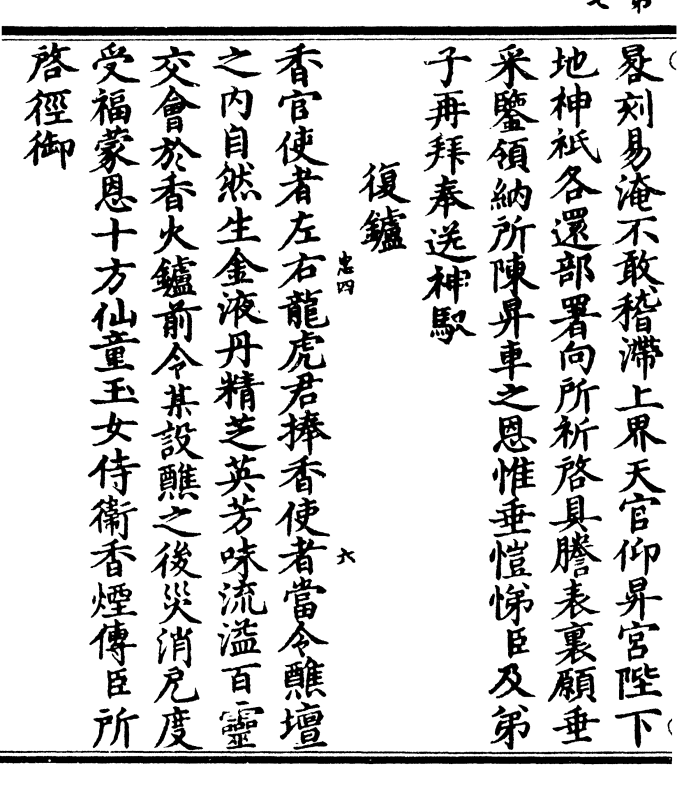 晷刻易淹不敢稽滯上界天官仰昇宮陛下
地神祇各還部署向所祈啓具謄表裏願垂
采鑒領納所陳昇車之恩惟垂愷悌臣及弟
子再拜奉送神馭
復鑪
忠四　六
香官使者左右龍虎君捧香使者當令醮壇
之内自然生金液丹精芝英芳味流溢百靈
交會於香火鑪前令某設醮之後災消厄度
受福蒙恩十方仙童玉女侍衞香煙傳臣所
啓徑御